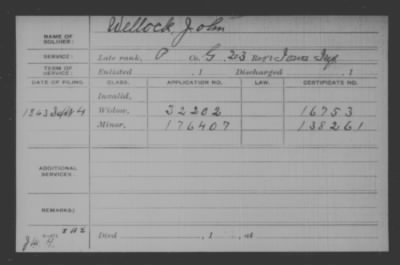 NAME OF SOLDIER: Wellock, John
SERVICE: Late rank, P Co. G, 23 Reg't Iowa Inf
TERM OF SERVICE: Enlisted , 1 Discharged , 1
DATE OF FILING. CLASS. APPLICATION NO. LAW. CERTIFICATE NO.
Invalid,
1863 Sept 4 Widow, 32202 16753
Minor, 176407 138261
ADDITIONAL SERVICES:
REMARKS:
Died , 1 , at